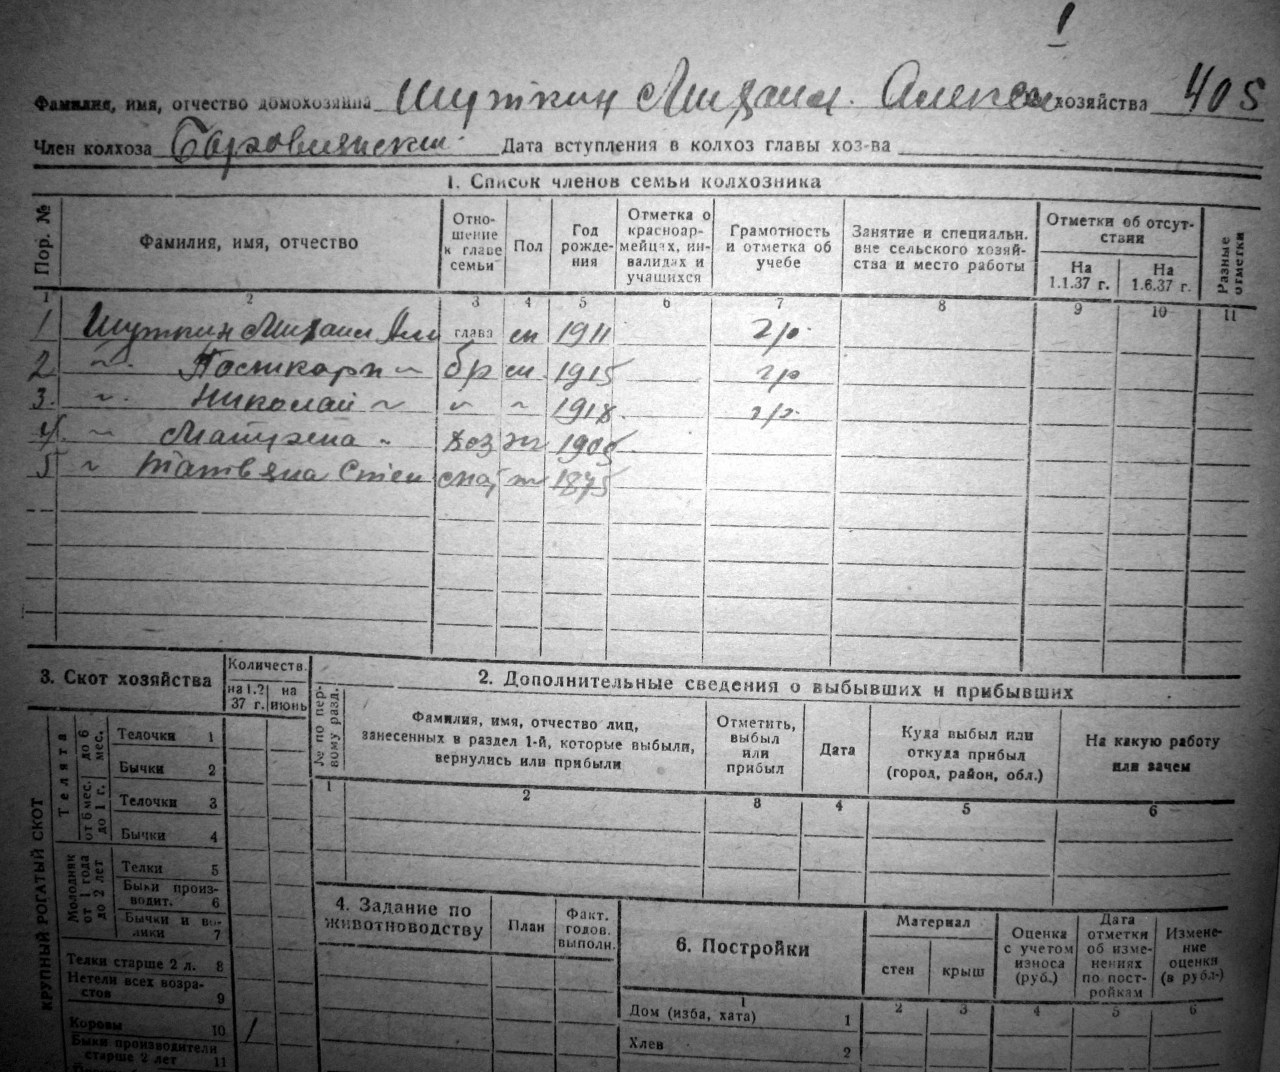 1
Фамилия, имя, отчество домохозяина Шуткин Михаил Алексе хозяйства 405
Член колхоза Дата вступления в колхоз главы хоз-ва
1. Список членов семьи колхозника
Пор. № Фамилия, имя, отчество Отношение к главе семьи Пол Год рождения Отметка о красноармейцах, инвалидах и учащихся Грамотность и отметка об учебе Занятие и специальн. вне сельского хозяйства и место работы Отметки об отсутствии На 1.1.37 г. На 1.6.37 г. Разные отметки
1 2 3 4 5 6 7 8 9 10 11
1 Шуткин Михаил Але глава м 1911 гр.
2 〃 Поликарп 〃 бр м. 1915 гр
3. 〃 Николай 〃 〃 〃 1918. гр.
4. 〃 Матрена 〃 ж 1905
5 〃 Татьяна Степ мат ж 1875
3. Скот хозяйства Количеств. на 1.1 37 г. на июнь
2. Дополнительные сведения о выбывших и прибывших
№ по первому разд. Фамилия, имя, отчество лиц, занесенных в раздел 1-й, которые выбыли, вернулись или прибыли Отметить, выбыл или прибыл Дата Куда выбыл или откуда прибыл (город, район, обл.) На какую работу или зачем
1 2 3 4 5 6
КРУПНЫЙ РОГАТЫЙ СКОТ
Телята до 6 мес.
Телочки 1
Бычки 2
от 6 мес. до 1 г.
Телочки 3
Бычки 4
Молодняк от 1 года до 2 лет
Телки 5
Быки производит. 6
Бычки и волики 7
Телки старше 2 л. 8
Нетели всех возрастов 9
Коровы 10 1
Быки производители старше 2 лет 11
4. Задание по животноводству План Факт. годов. выполн.
6. Постройки Материал стен крыш Оценка с учетом износа (руб.) Дата отметки об изменениях по постройкам Изменение оценки (в рубл.)
1 2 3 4 5 6
Дом (изба, хата) 1
Хлев 2